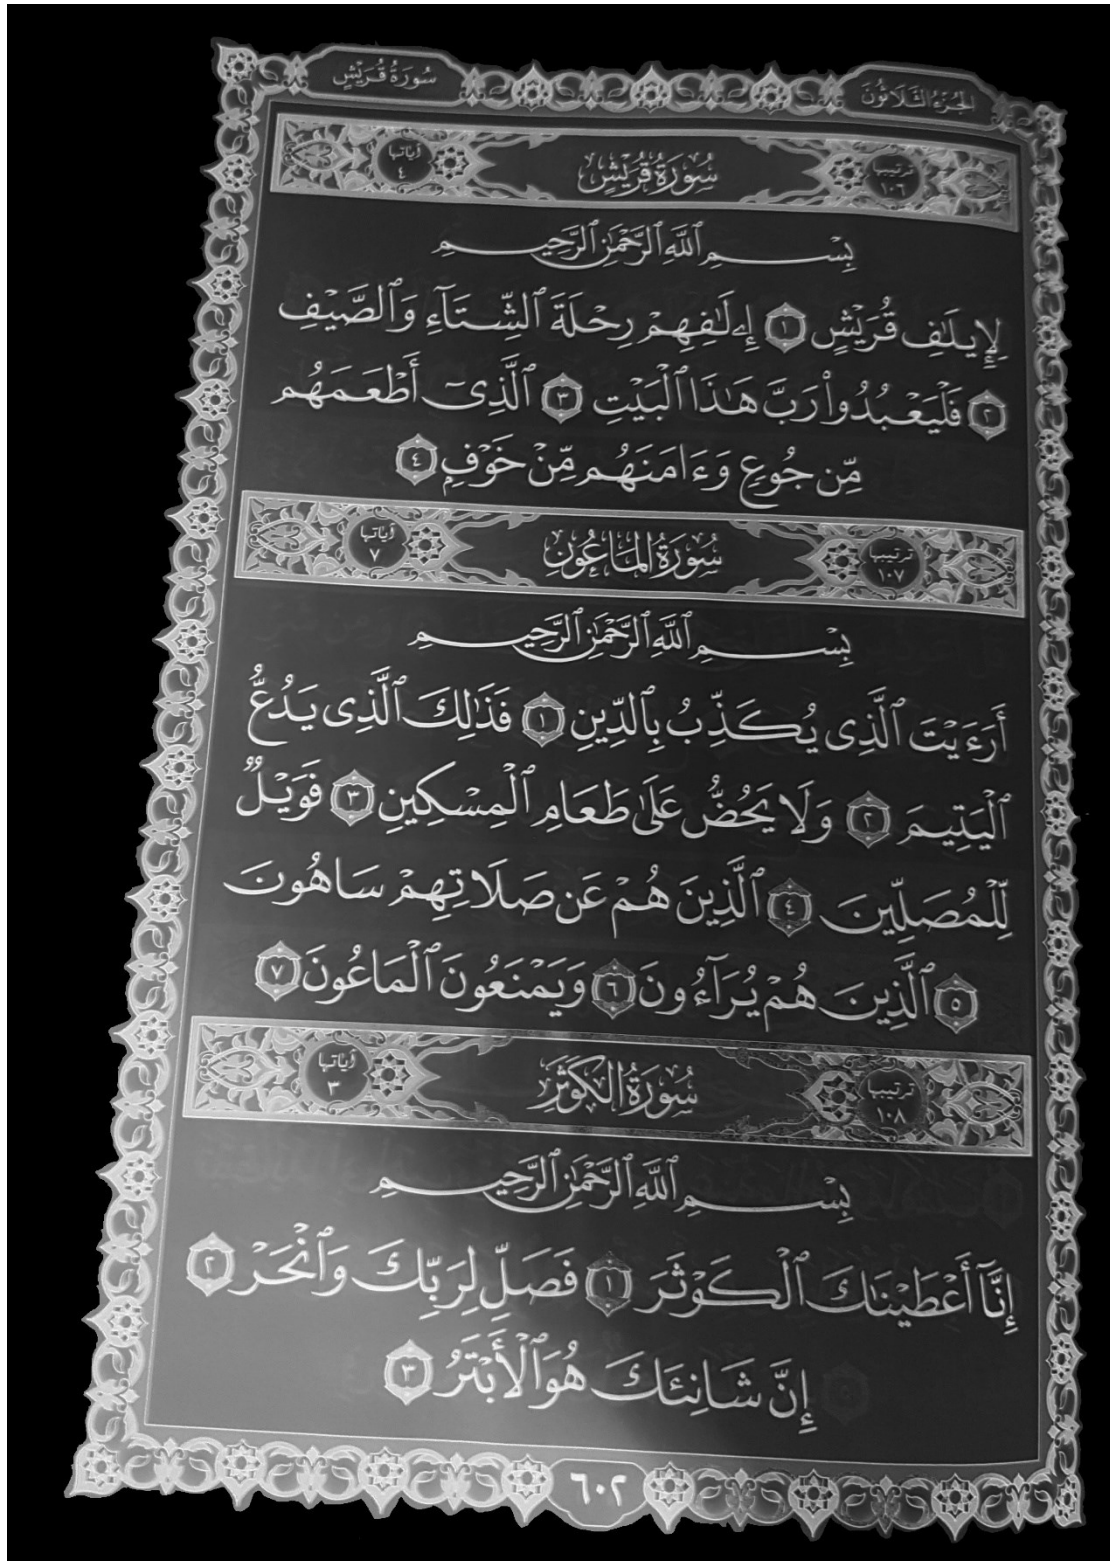 الجُزْءُ الثَّلَاثُونَ سُورَةُ قُرَيْشٍ
ترتيبها ١٠٦ سُورَةُ قُرَيْشٍ آياتها ٤
بِسْمِ ٱللَّهِ ٱلرَّحْمَٰنِ ٱلرَّحِيمِ
لِإِيلَٰفِ قُرَيْشٍ ١ إِۦلَٰفِهِمْ رِحْلَةَ ٱلشِّتَآءِ وَٱلصَّيْفِ
٢ فَلْيَعْبُدُوا۟ رَبَّ هَٰذَا ٱلْبَيْتِ ٣ ٱلَّذِىٓ أَطْعَمَهُم
مِّن جُوعٍ وَءَامَنَهُم مِّنْ خَوْفٍ ٤
ترتيبها ١٠٧ سُورَةُ المَاعُونِ آياتها ٧
بِسْمِ ٱللَّهِ ٱلرَّحْمَٰنِ ٱلرَّحِيمِ
أَرَءَيْتَ ٱلَّذِى يُكَذِّبُ بِٱلدِّينِ ١ فَذَٰلِكَ ٱلَّذِى يَدُعُّ
ٱلْيَتِيمَ ٢ وَلَا يَحُضُّ عَلَىٰ طَعَامِ ٱلْمِسْكِينِ ٣ فَوَيْلٌ
لِّلْمُصَلِّينَ ٤ ٱلَّذِينَ هُمْ عَن صَلَاتِهِمْ سَاهُونَ
٥ ٱلَّذِينَ هُمْ يُرَآءُونَ ٦ وَيَمْنَعُونَ ٱلْمَاعُونَ ٧
ترتيبها ١٠٨ سُورَةُ الكَوْثَرِ آياتها ٣
بِسْمِ ٱللَّهِ ٱلرَّحْمَٰنِ ٱلرَّحِيمِ
إِنَّآ أَعْطَيْنَٰكَ ٱلْكَوْثَرَ ١ فَصَلِّ لِرَبِّكَ وَٱنْحَرْ ٢
إِنَّ شَانِئَكَ هُوَ ٱلْأَبْتَرُ ٣
٦٠٢